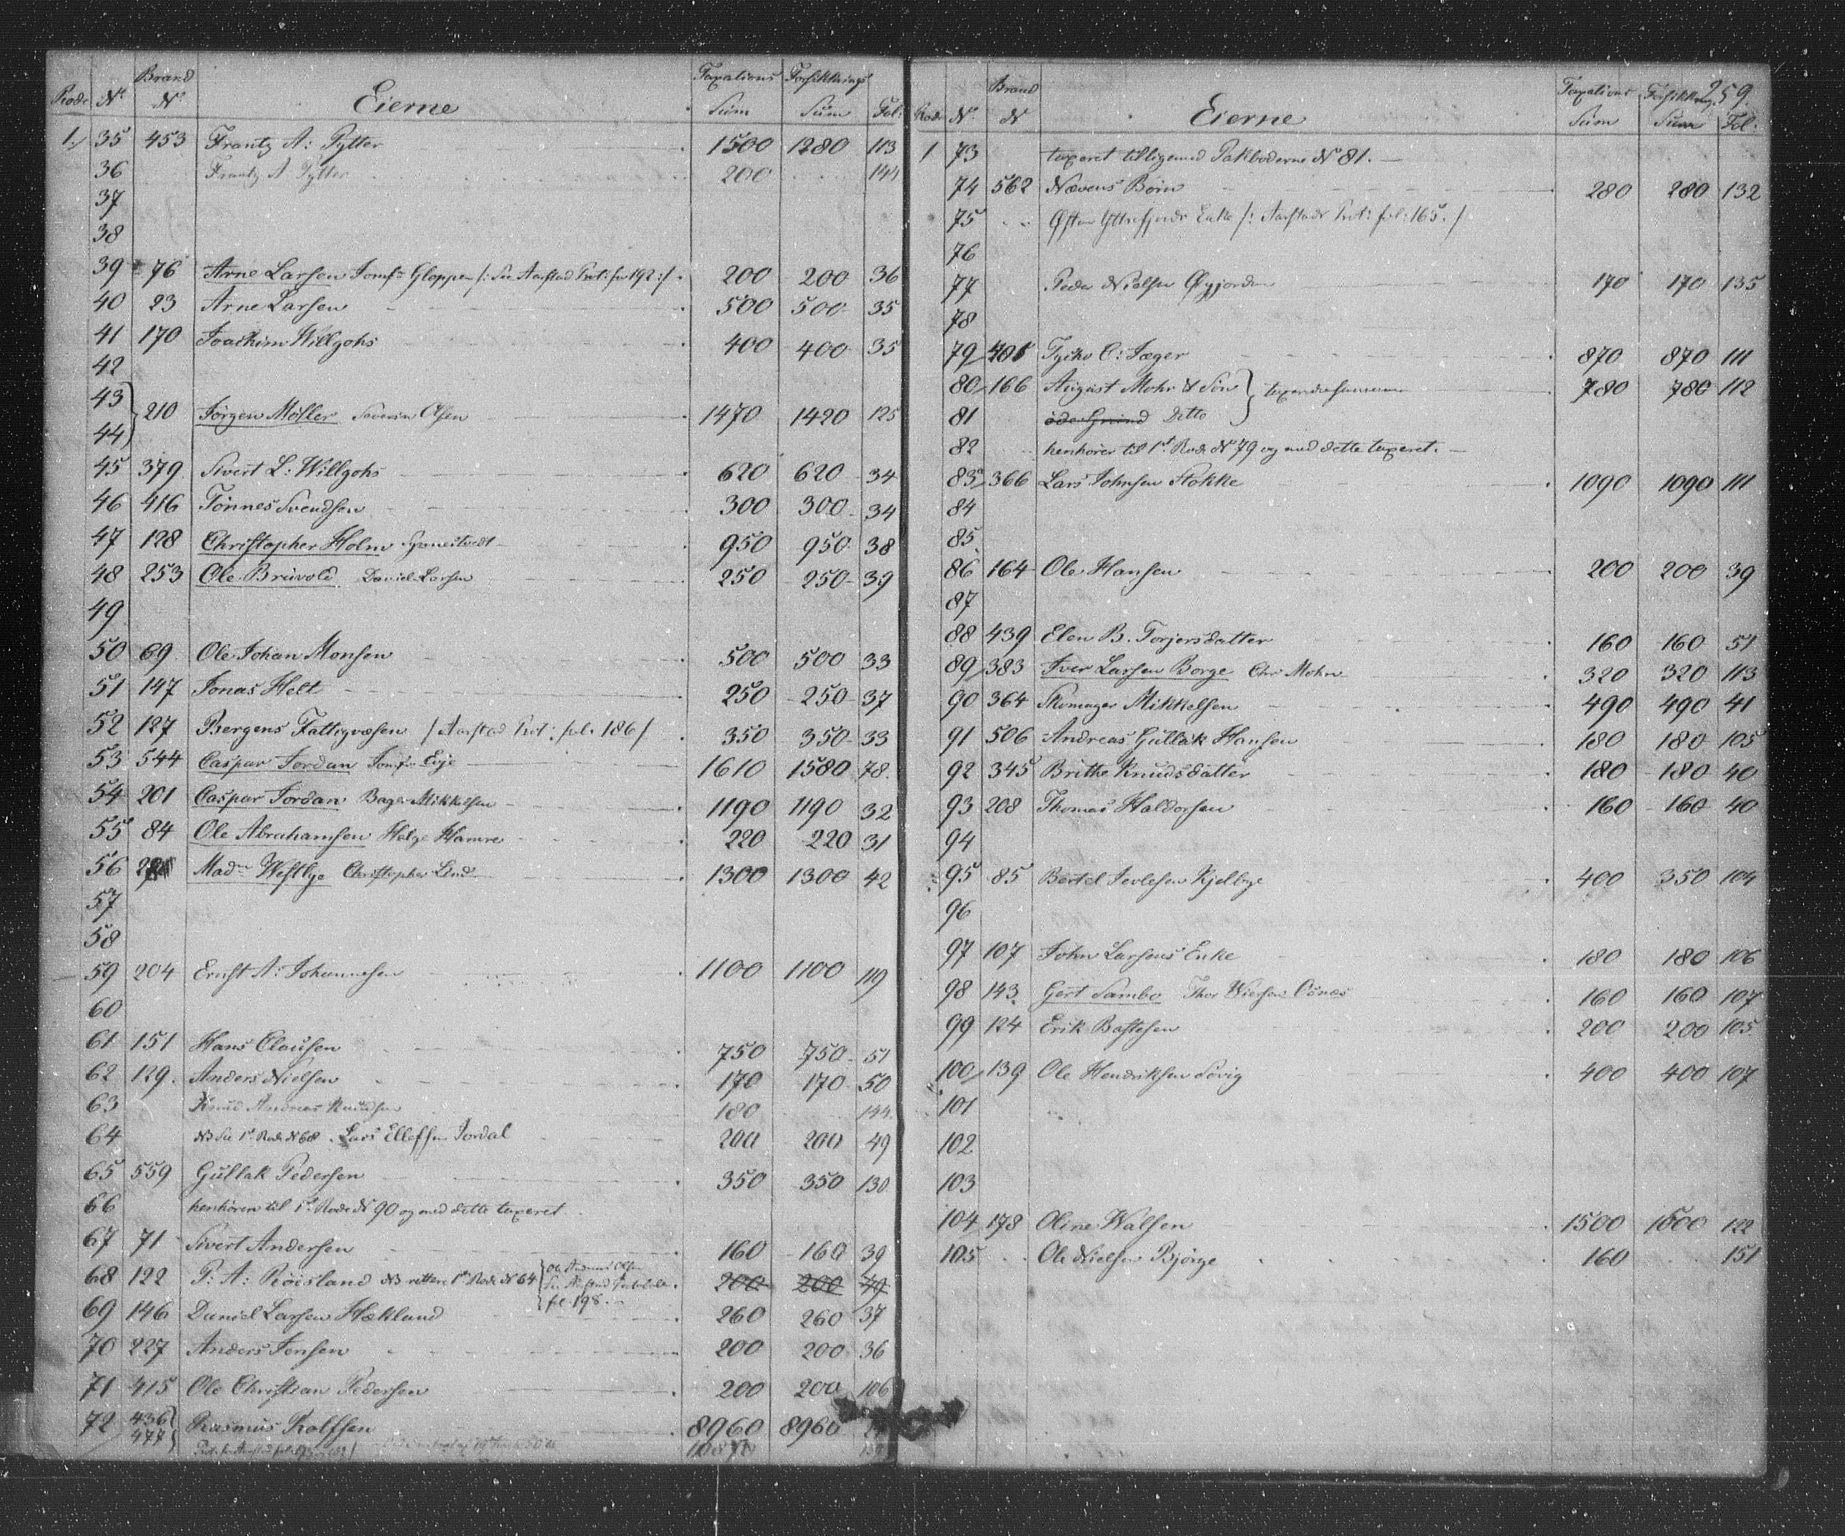 Rode N.º Brand N.º Eierne Taxations Sum Forsikkrings Sum Fol:
1. 35 453 Frantz A: Pytter 1500 1280 113
36 Frantz A Pytter 200 144
37
38
39 76 Arne Larsen Jomfr Gloppen /: Se Aarstad Prot: fol 192 :/ 200 200 36
40 23 Arne Larsen 500 500 35
41 170 Joachim Willgohs 400 400 35
42
43
44 } 210 Jörgen Möller Severin Olsen 1470 1420 125
45 379 Sivert L: Willgohs 620 620 34
46 416 Tönnes Svendsen 300 300 34
47 128 Christopher Holm 950 950 38
48 253 Ole Bruvold Daniel Larsen 250 250 39
49
50 69 Ole Johan Monsen 500 500 33
51 147 Jonas Helt 250 250 37
52 127 Bergens Fattigvæsen / Aarstad Prot: fol. 186 / 350 350 33
53 544 Caspar Jordan Jomfr Evje 1610 1580 78
54 201 Caspar Jordan Bager Mikkelsen 1190 1190 32
55 84 Ole Abrahamsen Helge Hamre 220 220 31
56 Madm Westbye Christopher Lind 1300 1300 42
57
58
59 204 Ernst A: Johannesen 1100 1100 119
60
61 151 Hans Clausen 750 750 51
62 129 Anders Nielsen 170 170 50
63 Knud Andreas Knudsen 180 144
64 NB Se 1st Rode N 68. Lars Ellefsen Jordal 200 200 49
65 559 Gullak Pedersen 350 350 130
66 henhören til 1st Rode N 90 og med dette taxeret
67 71 Sivert Andersen 160 160 39
68 122 P: A: Röisland NB rettere 1st Rode N 64 fol 198. 200 200 49
69 146 Daniel Larsen Hækland 260 260 37
70 227 Anders Jensen 200 200 36
71 415 Ole Christian Pedersen 200 200 106
72 436 Rasmus Rolfsen 8960 8960
477
259.
Rode N.º Brand N Eierne Taxations Sum Forsikkrings Sum Fol:
1 73 taxeret tilligemed Pakboderne N 81.
74 562 Nævens Börn 280 280 132
75 Yttrefjords Enke /: Aarstads Prot: fol: 165. /
76
77 Peder Nielsen Öygjorden 170 170 135
78
79 401 Tycho C: Jæger 870 870 111
80 166 August Mohr & Sön } 780 780 112
81 öde Grund Ditto
82 henhörer til 1st Rode N 79 og med dette taxeret.
83 366 Lars Johnsen Stokke 1090 1090 111
84
85
86 164 Ole Hansen 200 200 39
87
88 439 Elen B. Torjersdatter 160 160 51
89 383 Iver Larsen Borge Chr Mohn 320 320 113
90 364 Skomager Mikkelsen 490 490 41
91 506 Andreas Gullak Hansen 180 180 105
92 345 Brithe Knudsdatter 180 180 40
93 208 Thomas Haldorsen 160 160 40
94
95 85 Bertel Kjelbye 400 350 104
96
97 107 John Larsens Enke 180 180 106
98 143 Gert Sambo Thor 160 160 107
99 124 Erik Bastesen 200 200 105
100 139 Ole Hendriksen Sövig 400 400 107
101
102
103
104 178 Oline Walsen 1500 1500 122
105 Ole Nielsen Bjørge 160 151